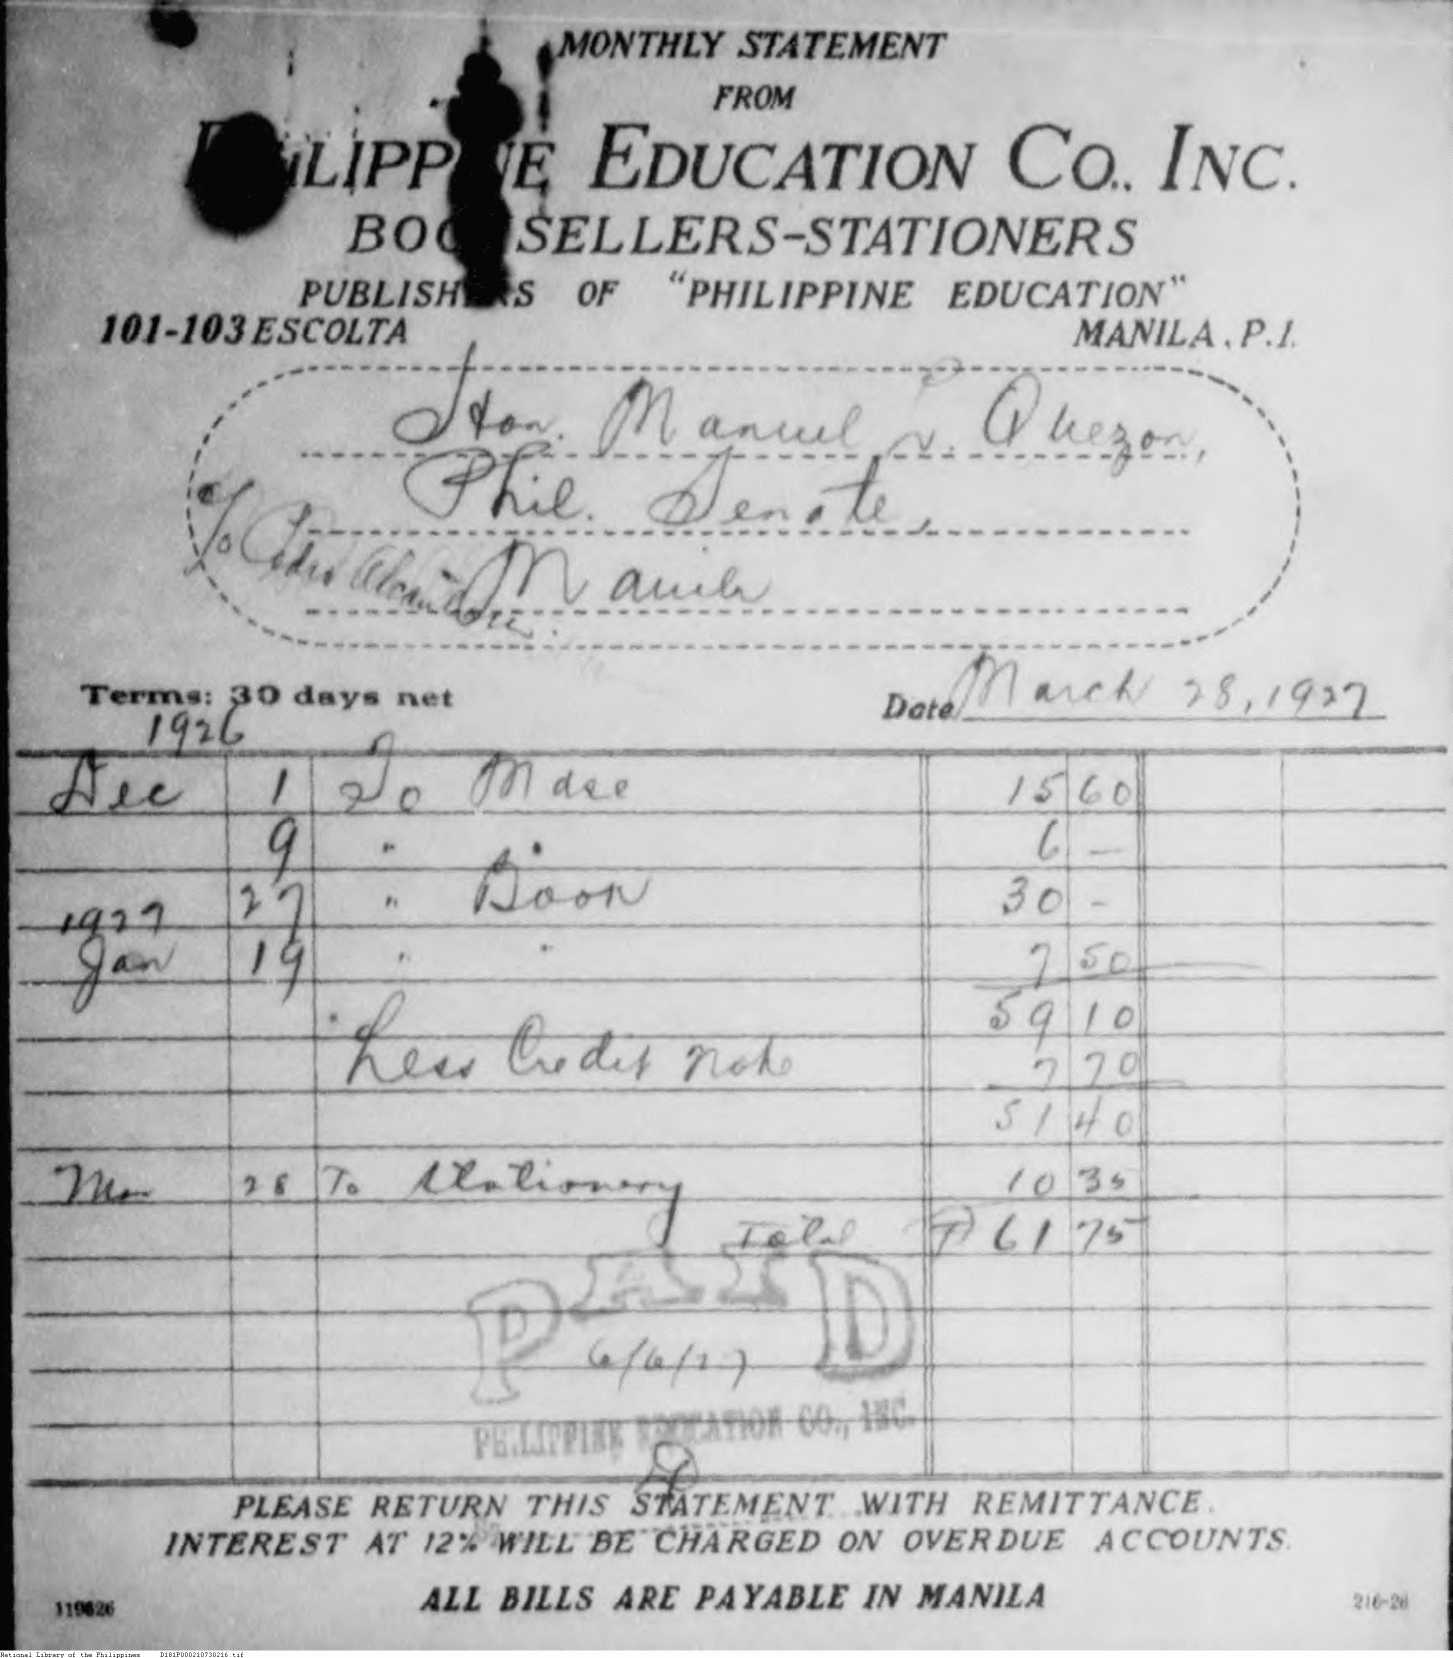 MONTHLY STATEMENT
FROM
PHILIPPINE EDUCATION CO., INC.
BOOKSELLERS-STATIONERS
PUBLISHERS OF "PHILIPPINE EDUCATION"
101-103 ESCOLTA MANILA, P.I.
Hon. Manuel L. Quezon,
Phil. Senate,
Manila
c/o Pedro
Terms: 30 days net
Date March 28, 1927
1926
Dec 1 To Mdse 15 60
9 " " 6 -
27 " Book 30 -
1927
Jan 19 " " 7 50
59 10
Less Credit note 7 70
51 40
Mar 28 To Stationery 10 35
Total ₱ 61 75
PAID
6/6/27
PHILIPPINE EDUCATION CO., INC.
PLEASE RETURN THIS STATEMENT WITH REMITTANCE.
INTEREST AT 12% WILL BE CHARGED ON OVERDUE ACCOUNTS.
ALL BILLS ARE PAYABLE IN MANILA
119626 216-26
National Library of the Philippines D181P000210730216.tif